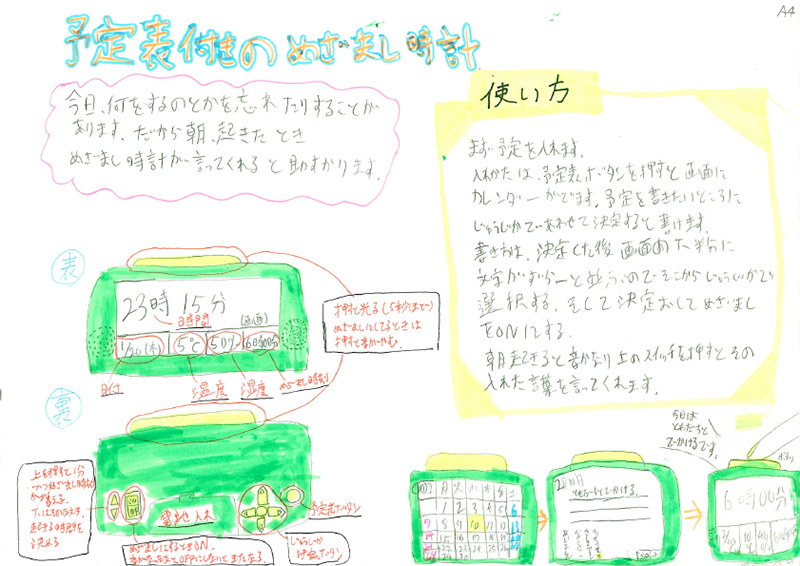 A4
予定表付きのめざまし時計
今日、何をするのとかを忘れたりすることが
あります。だから朝、起きたとき
めざまし時計が言ってくれると助すかります。
使い方
まず予定を入れます。
入れかたは、予定表ボタンを押すと画面に
カレンダーがでます。予定を書きたいところに
じゅうじかであわせて決定すると書けます。
書き方は、決定した後画面の下半分に
文字がずらーと並ぶのでそこからじゅうじかで
選択する。そして決定おしてめざまし
をONにする。
朝起きると音がなり上のスイッチを押すとその
入れた言葉を言ってくれます。
表
23時15分
時間
(画面)
1/20(木)
5℃
50%
6時00分
日付
温度
湿度
めざまし時刻
押すと光る(5秒まで)
めざましにしてるときは
押すと音がやむ。
裏
上を押すと1分
づつめざまし時刻
が
下は
起きる時間を
決める
ON
OFF
電池入れ
予定表ボタン
じゅうじか
決定ボタン
めざましにするときON。
音がなったあとOFFにしないとまたなる。
日 月 火 水 木 金 土
1 2 3 4 5 6
7 8 9 10 11 12 13
ともだちとでかける。
今日は
ともだちと
でかけるです。
6時00分